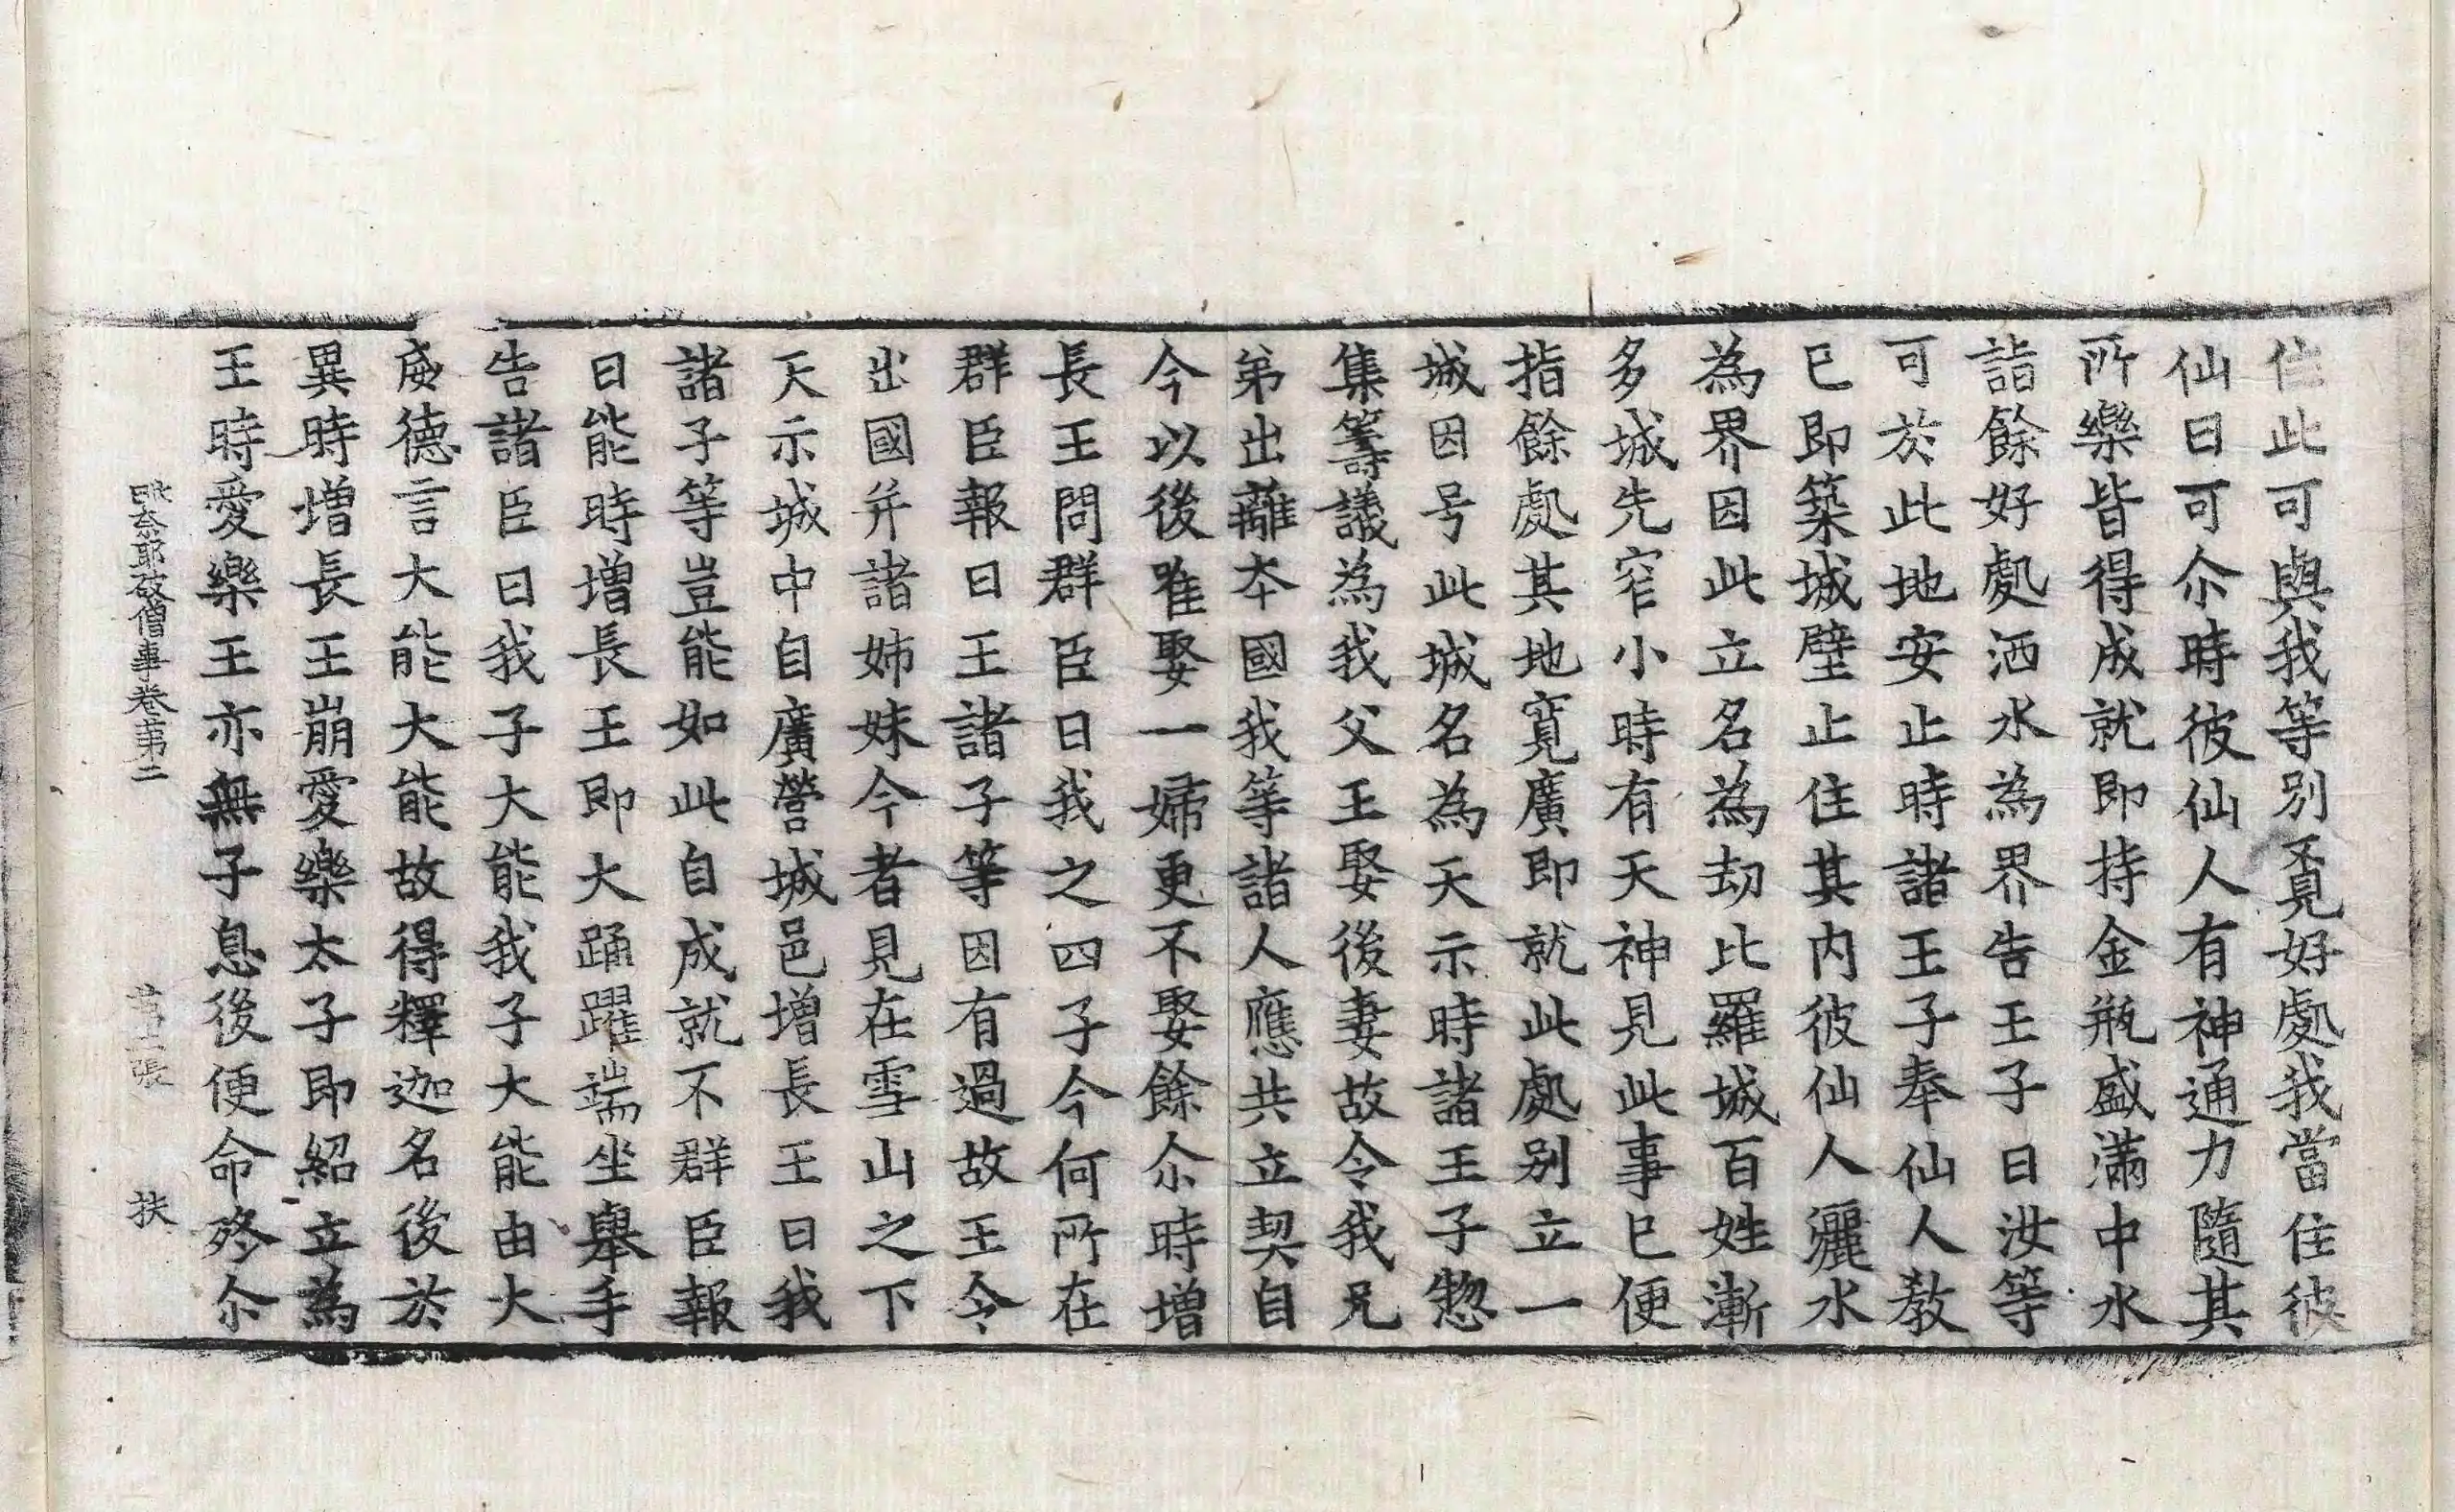 住此可與我等別覓好處我當住彼
仙曰可尒時彼仙人有神通力隨其
所樂皆得成就即持金瓶盛滿中水
詣餘好處洒水為界告王子曰汝等
可於此地安止時諸王子奉仙人教
已即築城壁止住其內彼仙人灑水
為界因此立名為劫比羅城百姓漸
多城先窄小時有天神見此事已便
指餘處其地寬廣即就此處別立一
城因号此城名為天示時諸王子惣
集籌議為我父王娶後妻故令我兄
弟出離本國我等諸人應共立契自
今以後唯娶一婦更不娶餘尒時增
長王問群臣曰我之四子今何所在
群臣報曰王諸子等因有過故王令
出國并諸姊妹今者見在雪山之下
天示城中自廣營城邑增長王曰我
諸子等豈能如此自成就不群臣報
曰能時增長王即大踊躍端坐舉手
告諸臣曰我子大能我子大能由大
威德言大能大能故得釋迦名後於
異時增長王崩愛樂太子即紹立為
王時愛樂王亦無子息後便命終尒
毗奈耶破僧事卷第二 第 張 扶